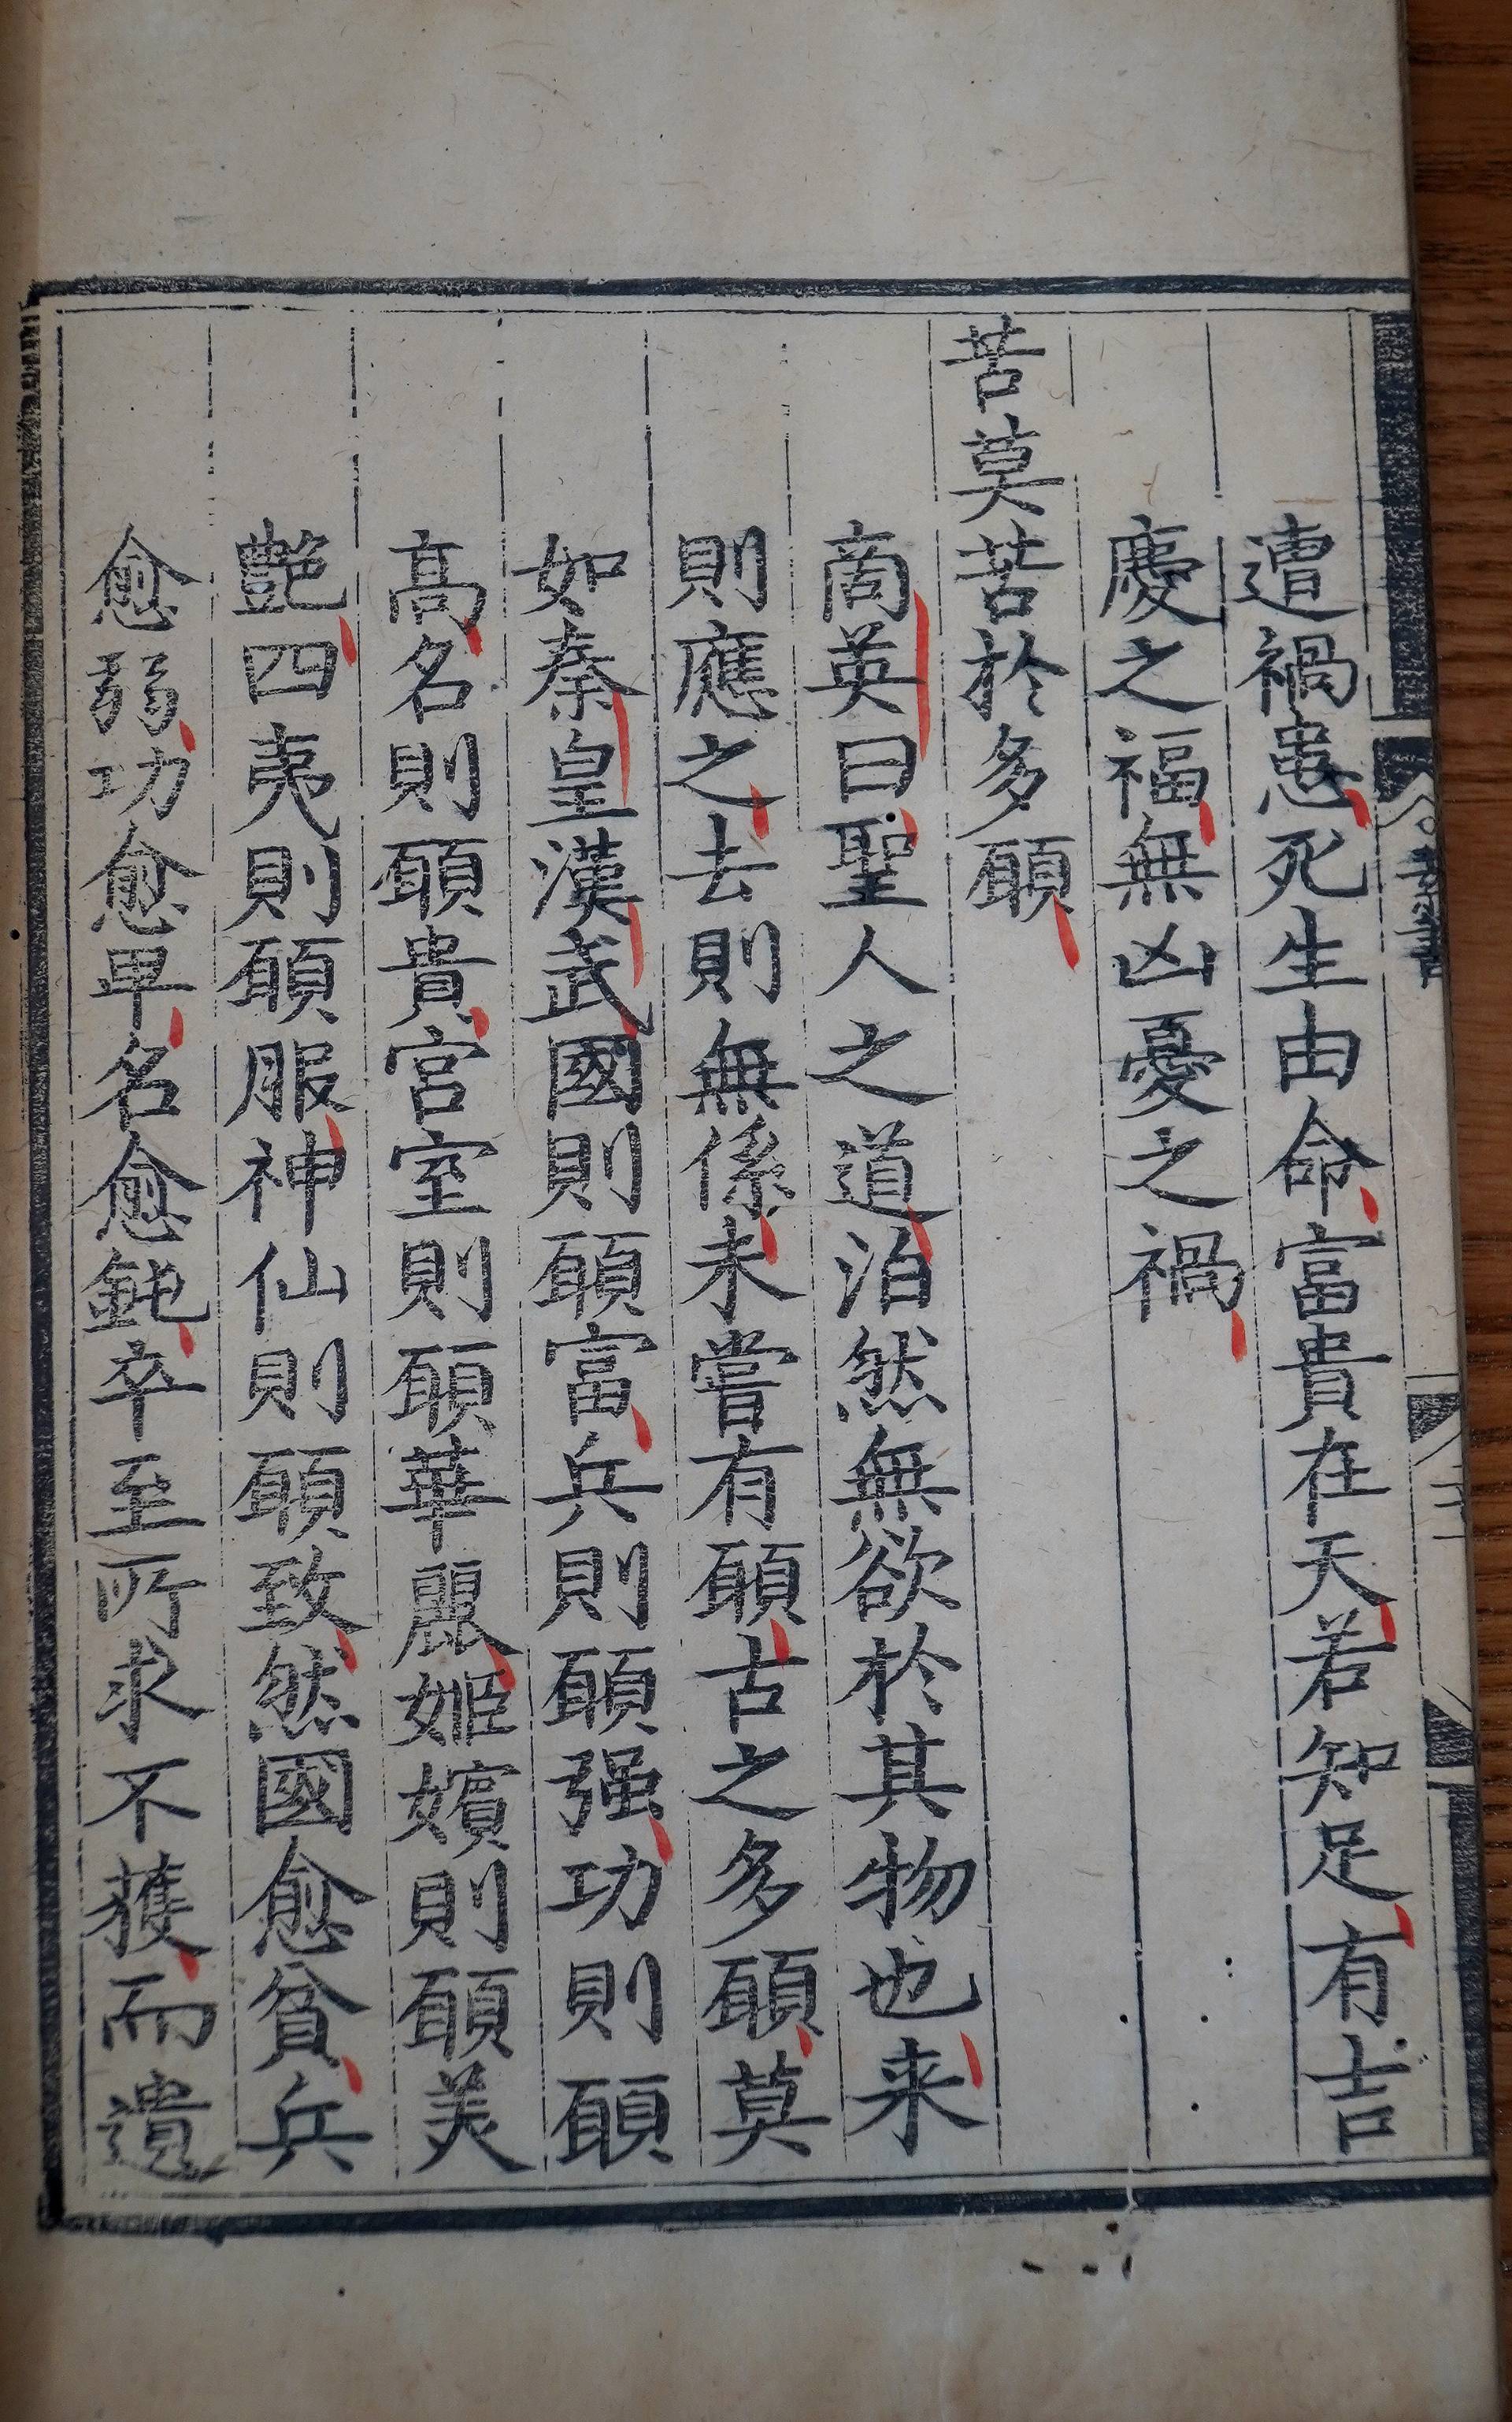 遭禍患死生由命富貴在天若知足有吉
慶之福無凶憂之禍
苦莫苦於多願
商英曰聖人之道泊然無欲於其物也来
則應之去則無係未嘗有願古之多願莫
如秦皇漢武國則願富兵則願强功則願
髙名則願貴宮室則願華麗姬嬪則願美
艶四夷則願服神仙則願致然國愈貧兵
愈弱功愈卑名愈鈍卒至所求不獲而遺